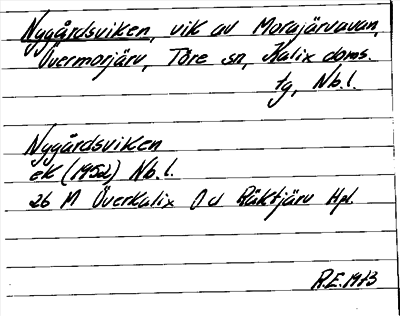 Nygårdsviken, vik av Morajärvavan,
Övermorjärv, Töre sn, Kalix doms.
tg, Nb.l.
Nygårdsviken
ek (1952) Nb.l.
26 M Överkalix Od Räktjärv Hpl.
R.E. 1973